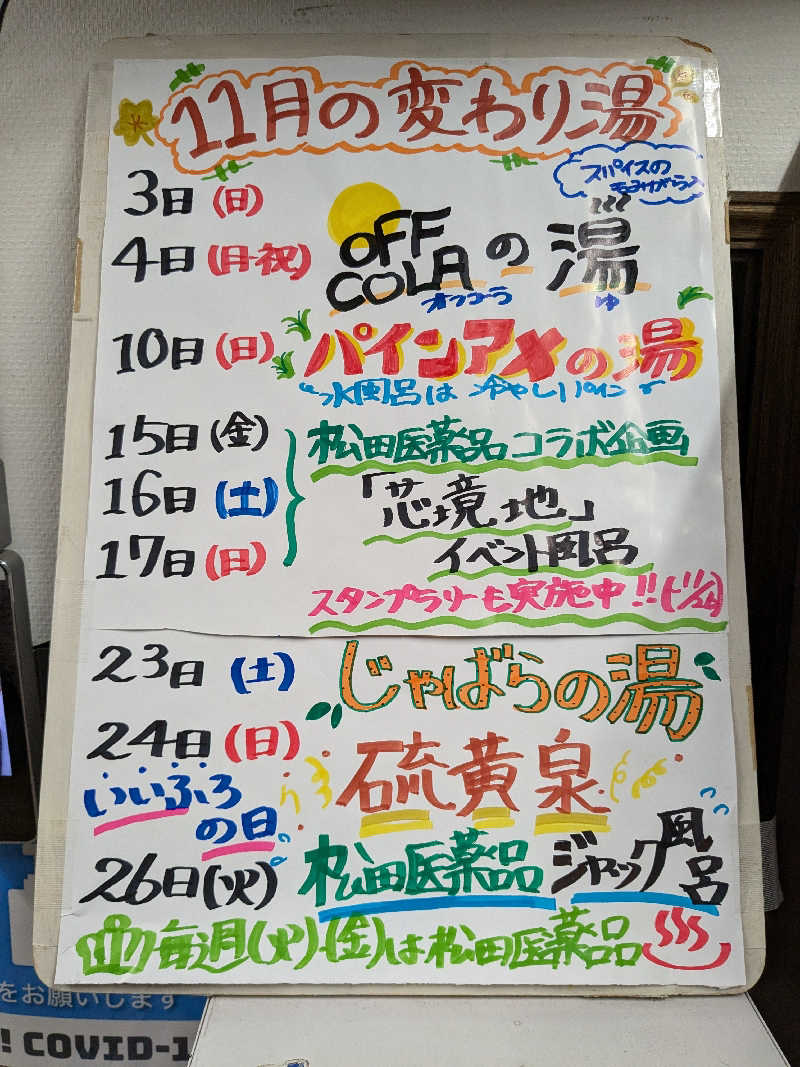 11月の変わり湯
スパイスの
もみがら入
3日(日)
4日(月・祝)
OFF
COLAの湯
オフコーラ
ゆ
10日(日)
パインアメの湯
"水風呂は冷やしパイン"
15日(金)
16日(土)
17日(日)
松田医薬品コラボ企画
「芯境地」
イベント風呂
スタンプラリーも実施中!!
23日(土)
じゃばらの湯
24日(日)
硫黄泉
いいふろ
の日
26日(火)
松田医薬品
ジャック風呂
毎週(火)・(金)は松田医薬品
をお願いします
! COVID-1